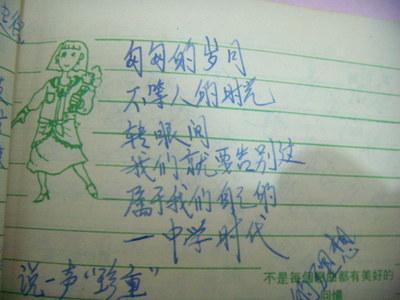 匆匆的岁月
不等人的时光
转眼间
我们就要告别这
属于我们自己的
—中学时代
说一声“珍重”
不是每個
都有美好的
回憶